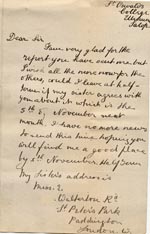 St Oswalds
College
Ellesmere
Salop
Dear Sir
I am very glad for the
report you have sent me. but
I want all the more now for the
other, could I leave at half-
term if my sister agrees with
you about it which is the
5th of November next
month. I have no more news
to send this time hoping you
will find me a good place
by 5th November Half Term
My Sisters address is
Miss. E.
Walterton Rd
St Peters Park
Paddington
London. W.